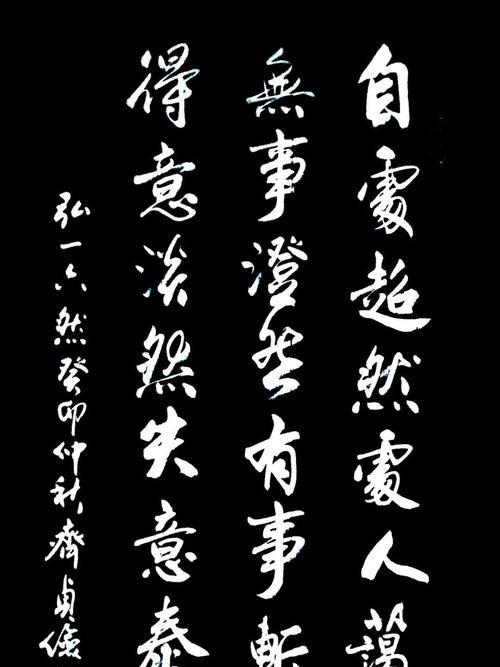 自處超然處人藹
無事澄然有事斬
得意淡然失意泰
弘一六然癸卯仲秋齊貞儉